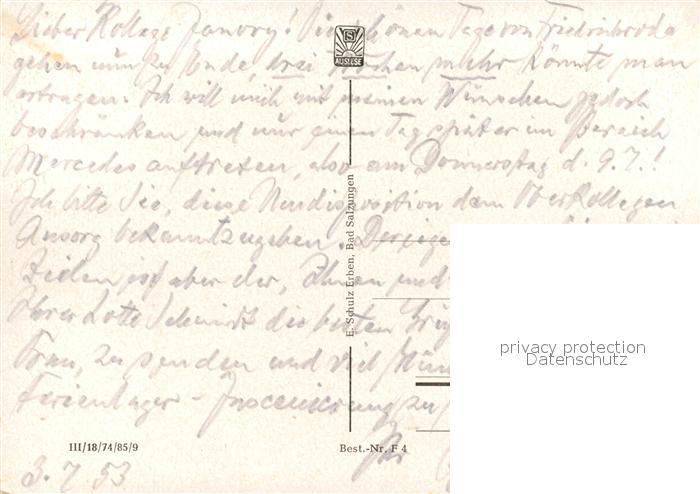 Lieber Kollege Janory! Die schönen Tage von Friedrichroda
gehen nun zu Ende, drei Wochen mehr könnte man
ertragen. Ich will mich mit meinen Wünschen jedoch
beschränken und nur einen Tag später im Bereich
Mercedes auftreten, also am Donnerstag d. 9.7.!
Ich bitte Sie, diese Neudisposition dem Oberkollegen
Ansorg bekanntzugeben.
Zeilen ist aber der, Ihnen und
Ihrer Lotte Schmidt die besten
Frau, zu senden und viel
Ferienlager - Inscenierung zu
AUSLESE
E. Schulz Erben, Bad Salzungen
privacy protection
Datenschutz
III/18/74/85/9
Best.-Nr. F 4
3.7.53